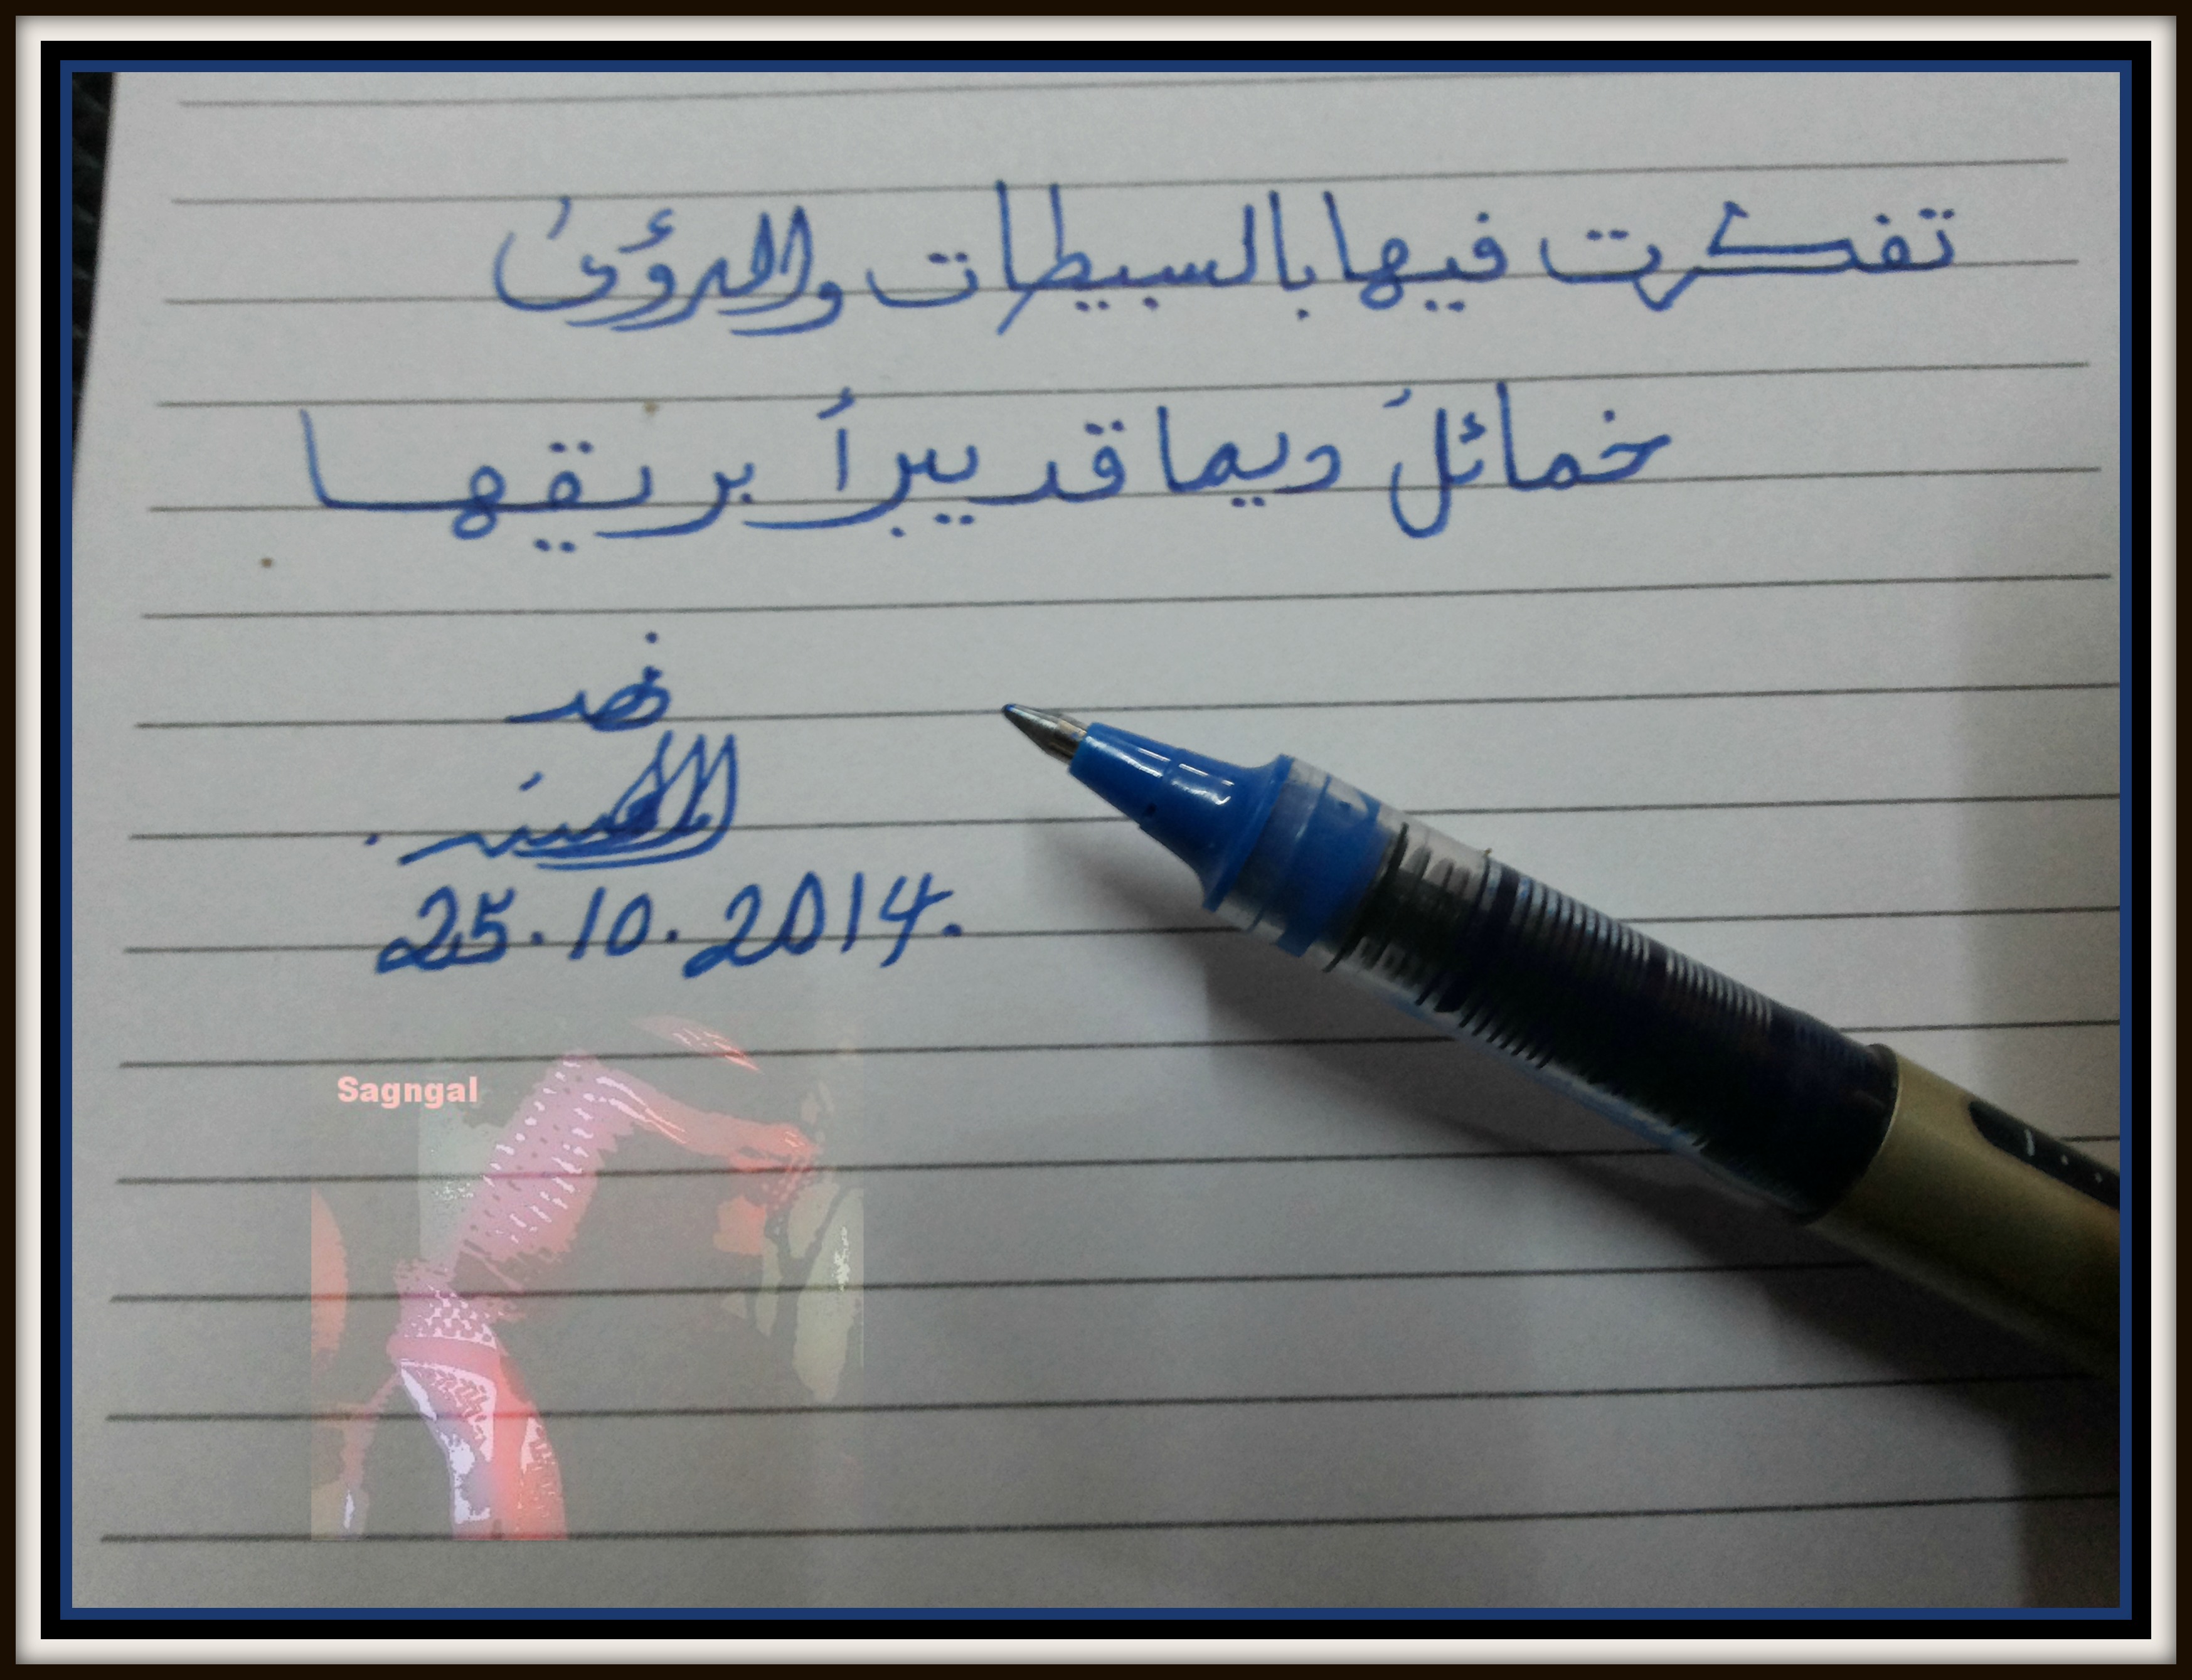 تفكرت فيها بالسبيطات والرؤى
خمائلَ ديما قد يبرأ بريقها
فهد
25.10.2014.
Sagngal